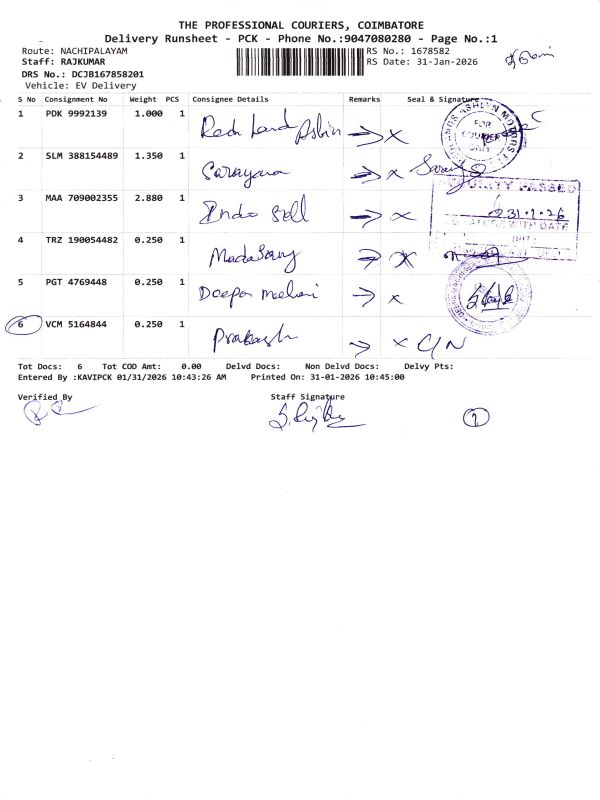 THE PROFESSIONAL COURIERS, COIMBATORE
Delivery Runsheet - PCK - Phone No.:9047080280 - Page No.:1
Route: NACHIPALAYAM RS No.: 1678582
Staff: RAJKUMAR RS Date: 31-Jan-2026
DRS No.: DCJB167858201
Vehicle: EV Delivery
S No Consignment No Weight PCS Consignee Details Remarks Seal & Signature
1 PDK 9992139 1.000 1 x
FOR
2 SLM 388154489 1.350 1 Sarayana x
SECURITY PASSED
3 MAA 709002355 2.880 1 Indo Sell x 31-1-26
WITH DATE
4 TRZ 190054482 0.250 1 x
5 PGT 4769448 0.250 1 Deepa x
6 VCM 5164844 0.250 1 Prakash x C/N
Tot Docs: 6 Tot COD Amt: 0.00 Delvd Docs: Non Delvd Docs: Delvy Pts:
Entered By :KAVIPCK 01/31/2026 10:43:26 AM Printed On: 31-01-2026 10:45:00
Verified By Staff Signature